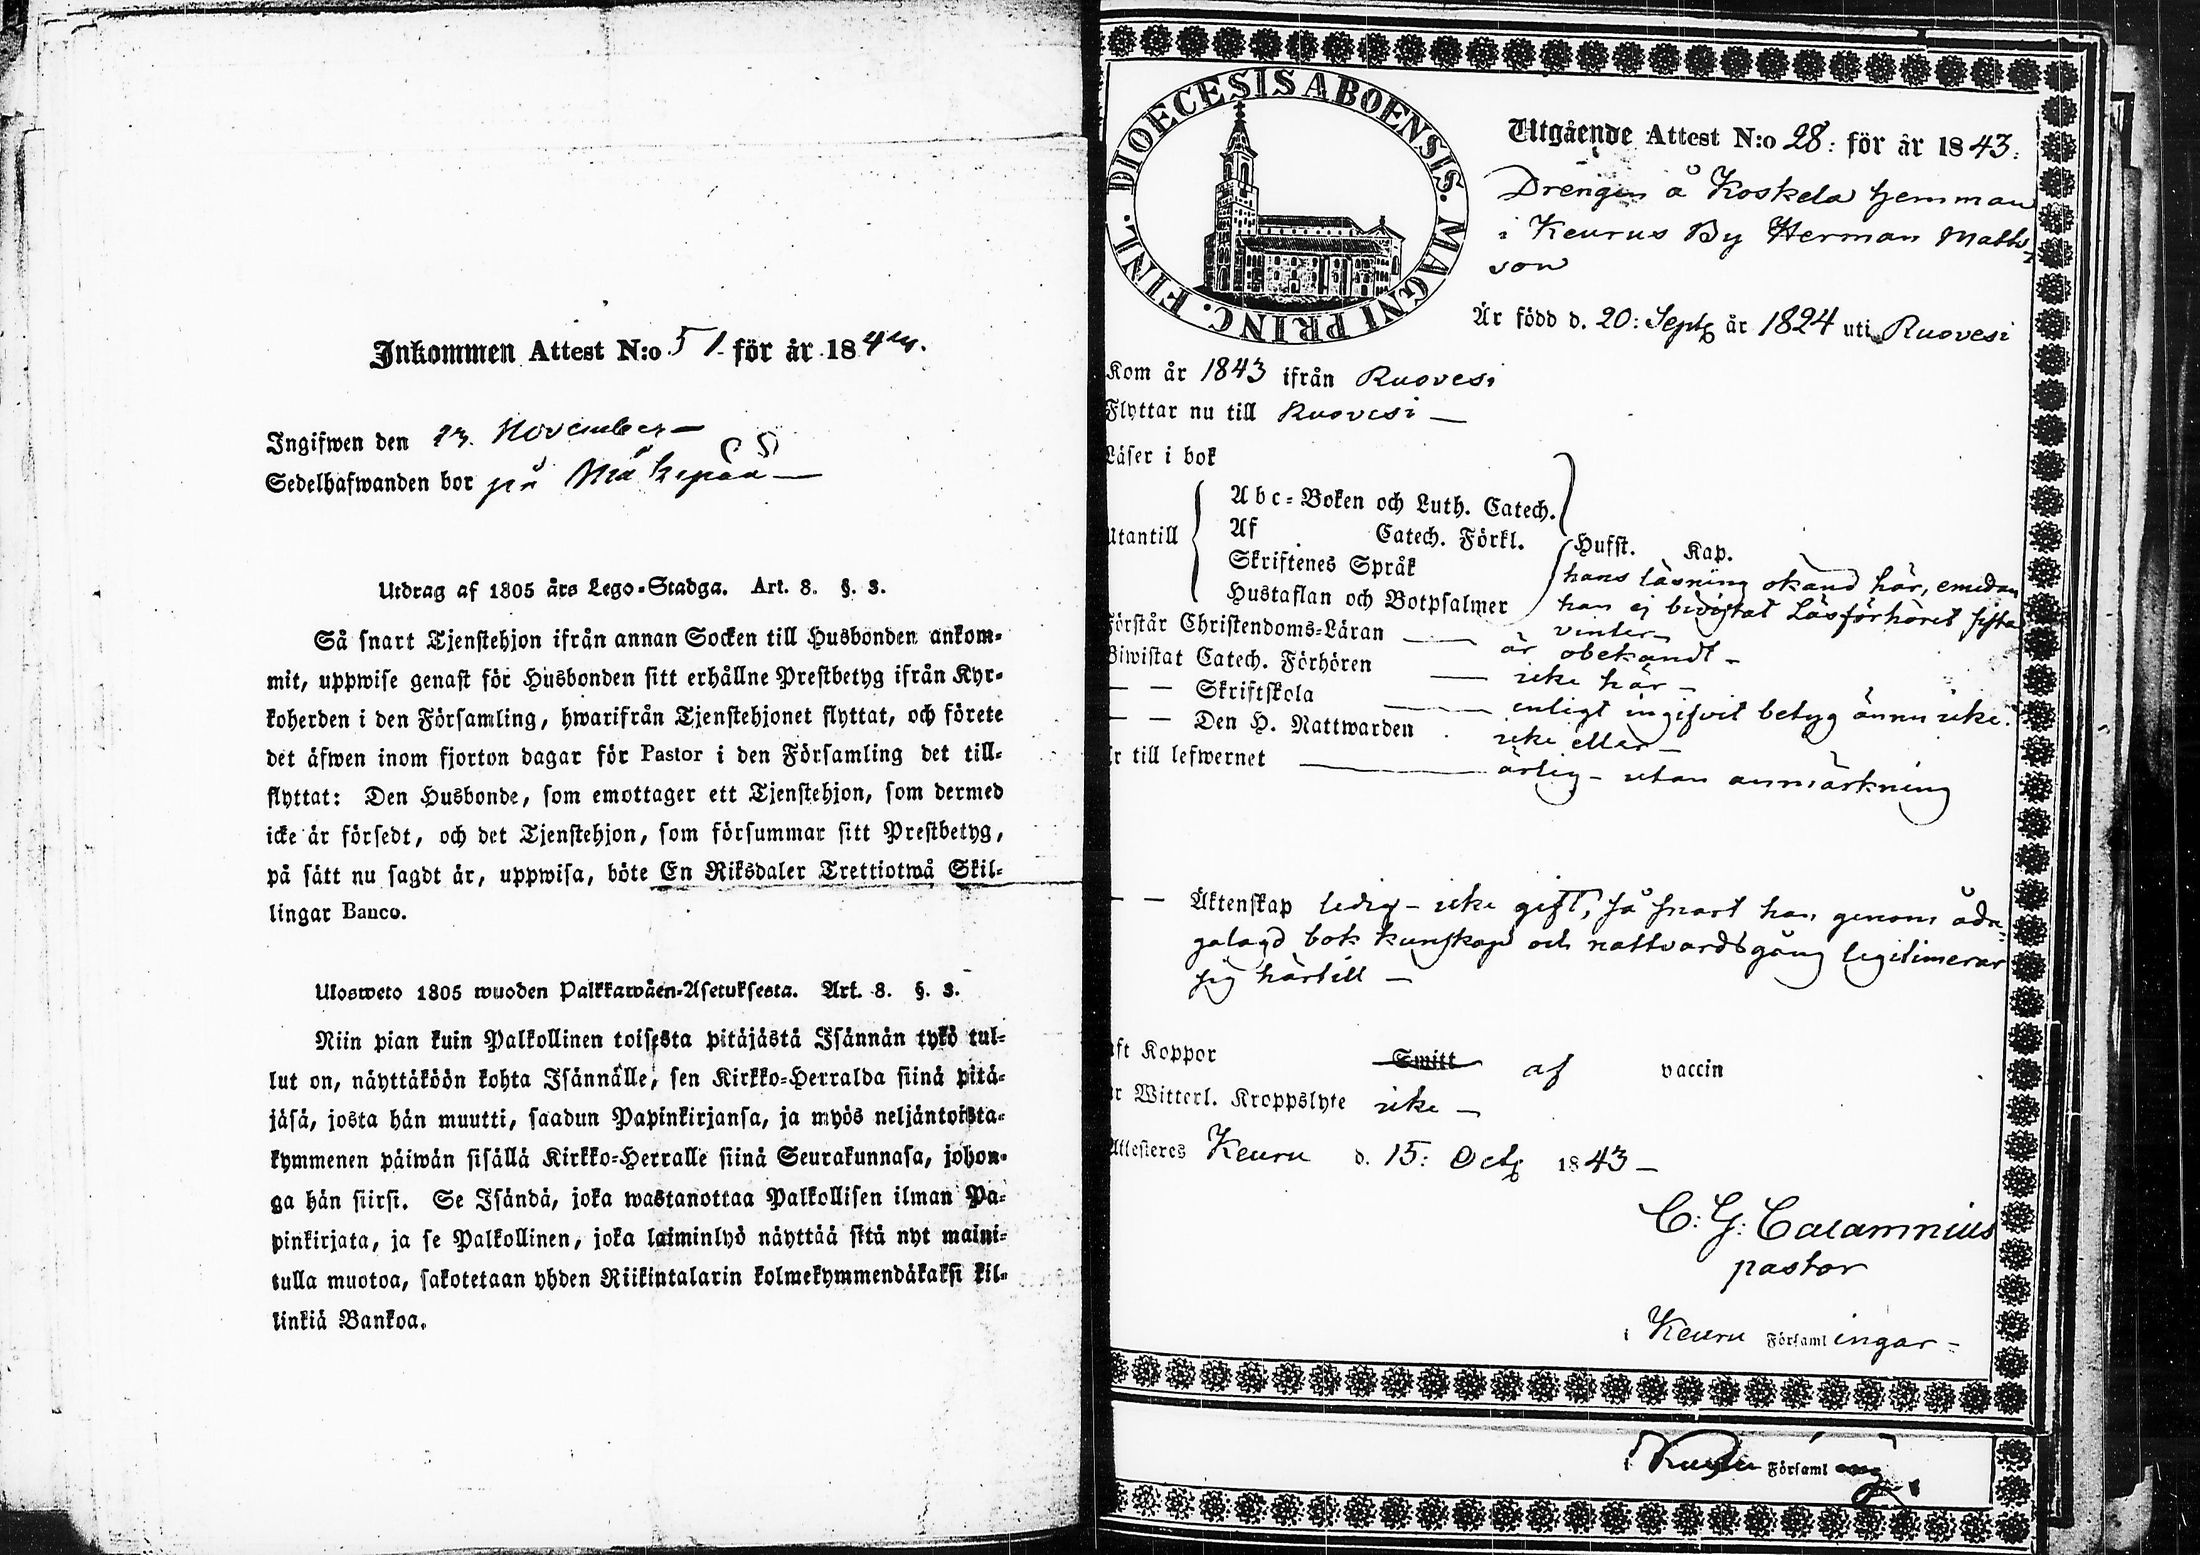 Inkommen Attest N:o 51 för år 184
Ingifwen den 23. November
Sedelhafwanden bor på Mäkepää
Utdrag af 1805 års Lego-Stadga. Art. 8. §. 3.
Så snart Tjenstehjon ifrån annan Socken till Husbonden ankom-
mit, uppwise genast för Husbonden sitt erhållne Prestbetyg ifrån Kyr-
koherden i den Församling, hwarifrån Tjenstehjonet flyttat, och förete
det äfwen inom fjorton dagar för Pastor i den Församling det till-
flyttat: Den Husbonde, som emottager ett Tjenstehjon, som dermed
icke är försedt, och det Tjenstehjon, som försummar sitt Prestbetyg,
på sätt nu sagdt är, uppwisa, böte En Riksdaler Trettiotwå Skil-
lingar Banco.
Ulosweto 1805 wuoden Palkkawäen-Asetuksesta. Art. 8. §. 3.
Niin pian kuin Palkollinen toisesta pitäjästä Isännän tykö tul-
lut on, näyttäköön kohta Isännälle, sen Kirkko-Herralda siinä pitä-
jäsä, josta hän muutti, saadun Papinkirjansa, ja myös neljäntoista-
kymmenen päiwän sisällä Kirkko-Herralle siinä Seurakunnasa, johon-
ga hän siirsi. Se Isändä, joka wastanottaa Palkollisen ilman Pa-
pinkirjata, ja se Palkollinen, joka laiminlyö näyttää sitä nyt maini-
tulla muotoa, sakotetaan yhden Riikintalarin kolmekymmendäkaksi kil-
linkiä Bankoa.
DIOECESIS ABOENSIS. MAGNI PRINC. FINL.
Utgående Attest N:o 28: för år 1843:
Drengen å Koskela hemman
i Keurus By Herman Matts-
son
Är född d. 20: Sept år 1824 uti Ruovesi
Kom år 1843 ifrån Ruovesi
Flyttar nu till Ruovesi —
Läser i bok
Utantill
Abc-Boken och Luth. Catech.
Af Catech. Förkl.
Skriftenes Språk
Hustaflan och Botpsalmer
Husst. Kap.
hans läsning okänd här, emedan
han ej bivistat Läsförhöret sista
vinter
Förstår Christendoms-Läran — är obekandt —
Biwistat Catech. Förhören — icke här —
— — Skriftskola — enligt ingifvit betyg ännu icke.
— — Den H. Nattwarden icke eller —
Är till lefwernet — ärlig — utan anmärkning
— — Äktenskap ledig — icke gift, så snart han genom åda-
galagd bok kunskap och nattvardsgång legitimerar
sig härtill —
Haft Koppor Smitt af vaccin
Är Witterl. Kroppslyte icke —
Attesteres Keuru d. 15: Oct 1843 —
C: G: Calamnius
pastor
i Keuru Församlingar —
i Församl